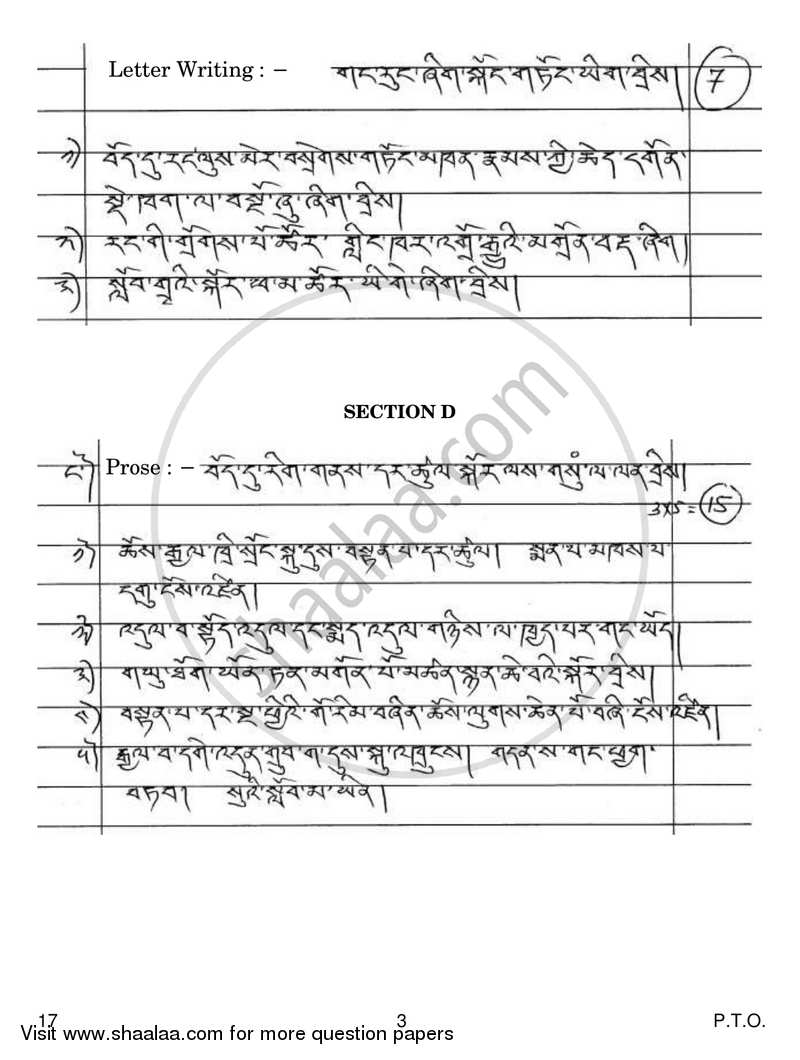 Letter Writing : – གང་རུང་ཞིག་སྐོར་གཏོང་ཡིག་བྲིས། 7
༡) བོད་དུ་རང་ལུས་མེར་བསྲེགས་གཏོང་མཁན་རྣམས་ཀྱི་ཆེད་དགོན་
སྡེ་ཁག་ལ་བསྔོ་ཞུ་ཞིག་བྲིས།
༢) རང་གི་གྲོགས་པོ་ཚོར་ གླིང་ཁར་འགྲོ་རྒྱུའི་མགྲོན་བརྡ་ཞིག
༣) སློབ་གྲྭའི་སྐོར་ཕ་མ་ཚོར་ཡི་གེ་ཞིག་བྲིས།
SECTION D
Prose : – བོད་དུ་རིག་གནས་དར་ཚུལ་སྐོར་ལས་གསུམ་ལ་ལན་བྲིས།
3x5= 15
༡) ཆོས་རྒྱལ་ཁྲི་སྲོང་སྐུ་དུས་བསྟན་པ་དར་ཚུལ། སྨན་པ་མཁས་པ་
དགུ་ངོས་འཛིན།
༢) འདུལ་བ་སྟོད་འདུལ་དང་སྨད་འདུལ་གཉིས་ལ་ཁྱད་པར་གང་ཡོད།
༣) གཡུ་ཐོག་ཡོན་ཏན་མགོན་པོ་མཚན་སྙན་ཆེ་བའི་སྐོར་བྲིས།
༤) བསྟན་པ་དར་སྔ་ཕྱིའི་གོ་རིམ་བཞིན་ཆོས་ལུགས་ཆེན་པོ་བཞི་ངོས་འཛིན།
༥) རྒྱལ་བ་དགེ་འདུན་གྲུབ་ག་དུས་སྐུ་འཁྲུངས། གདན་ས་གང་ཕྱག་
བཏབ། སུའི་སློབ་མ་ཡིན།
17
3
P.T.O.
Visit www.shaalaa.com for more question papers
shaalaa.com